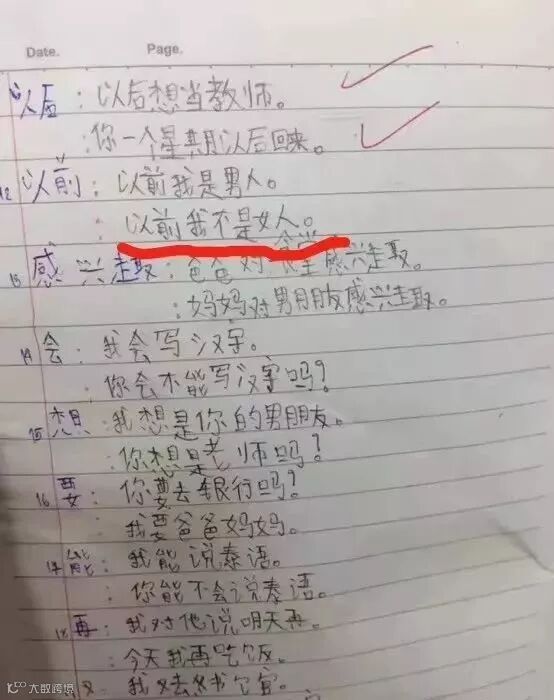 Date. Page.
以后：以后想当教师。
：你一个星期以后回来。
12 以前：以前我是男人。
：以前我不是女人。
13 感兴趣：爸爸对 感兴趣。
：妈妈对男朋友感兴趣。
14 会：我会写汉字。
你会不能写汉字吗？
15 想：我想是你的男朋友。
你想是老师吗？
16 要：你要去银行吗？
我要爸爸妈妈。
17 能：我能说泰语。
你能不会说泰语。
18 再：我对他说明天再。
今天我再吃饭。
又 我又去
大数跨境